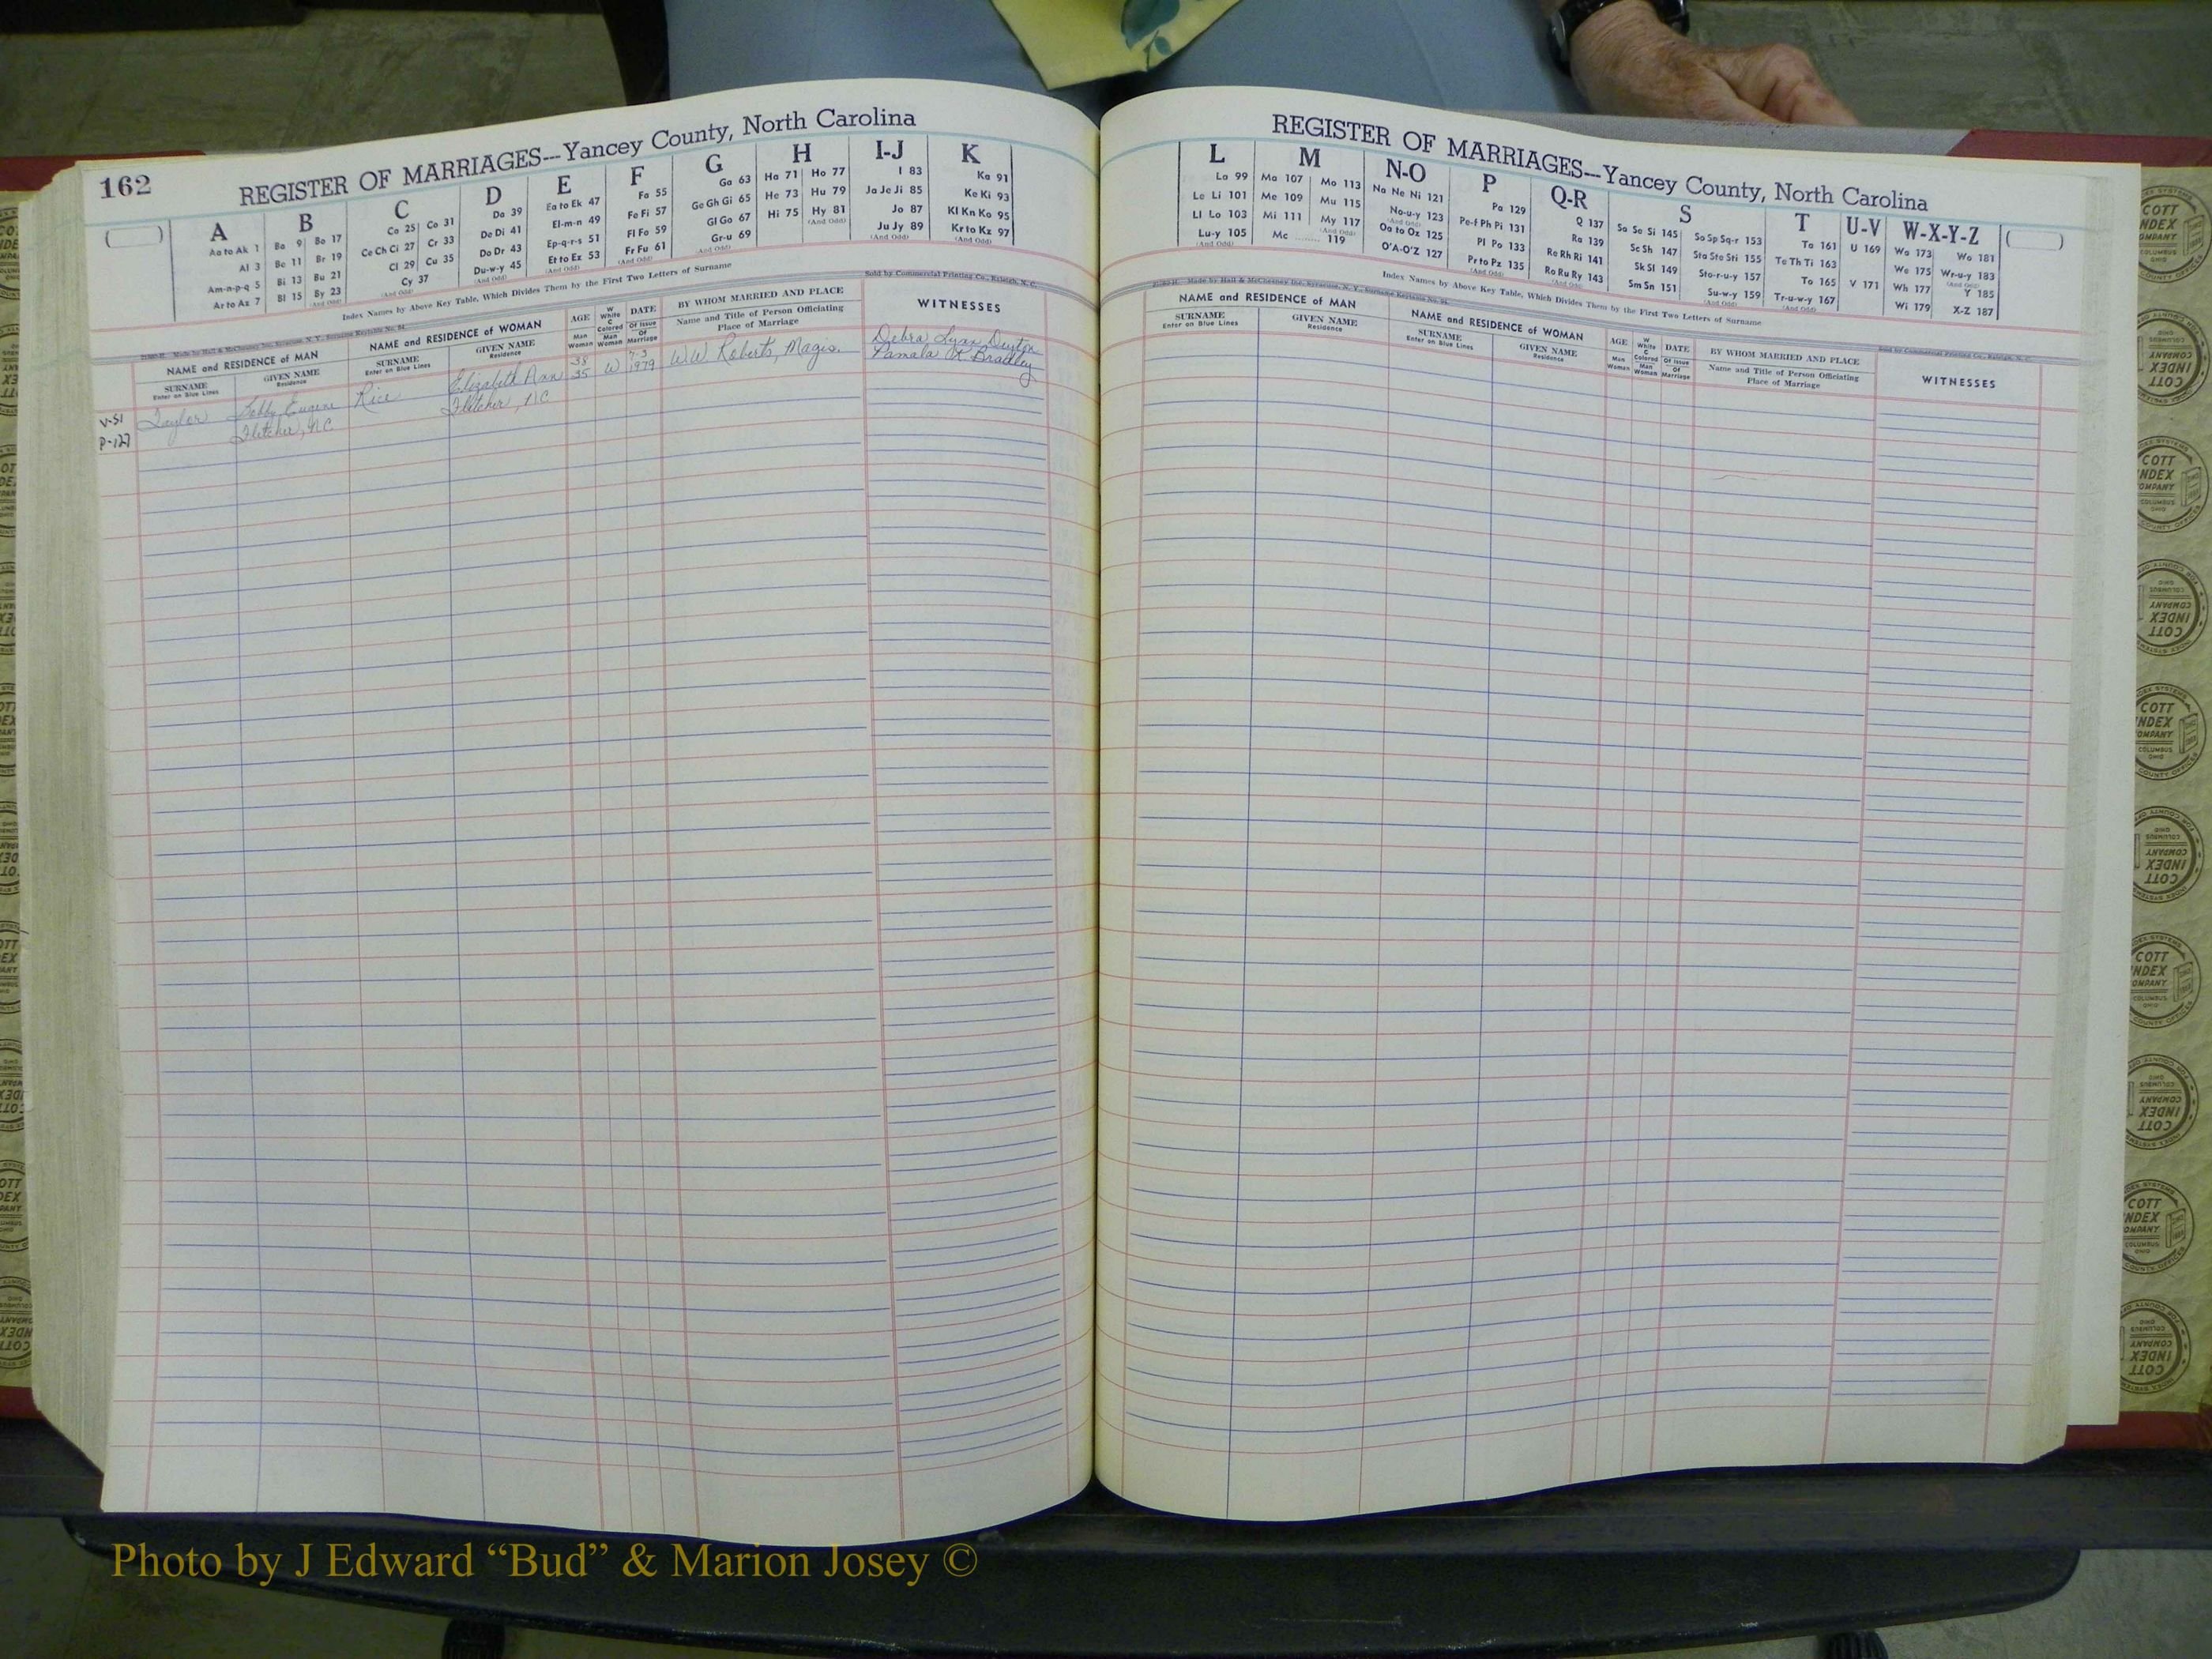 162
REGISTER OF MARRIAGES---Yancey County, North Carolina
A
Aa to Ak 1
Al 3
Am-n-p-q 5
Ar to Az 7
B
Ba 9 Bo 17
Be 11 Br 19
Bi 13 Bu 21
Bl 15 By 23
(And Odd)
C
Ca 25 Co 31
Ce Ch Ci 27 Cr 33
Cl 29 Cu 35
Cy 37
(And Odd)
D
Da 39
De Di 41
Do Dr 43
Du-w-y 45
(And Odd)
E
Ea to Ek 47
El-m-n 49
Ep-q-r-s 51
Et to Ez 53
(And Odd)
F
Fa 55
Fe Fi 57
Fl Fo 59
Fr Fu 61
(And Odd)
G
Ga 63
Ge Gh Gi 65
Gl Go 67
Gr-u 69
(And Odd)
H
Ha 71 Ho 77
He 73 Hu 79
Hi 75 Hy 81
(And Odd)
I-J
I 83
Ja Je Ji 85
Jo 87
Ju Jy 89
(And Odd)
K
Ka 91
Ke Ki 93
Kl Kn Ko 95
Kr to Kz 97
(And Odd)
Index Names by Above Key Table, Which Divides Them by the First Two Letters of Surname
Made by Hall & McChesney Inc., Syracuse, N. Y., Surname Keytable No. 94
Sold by Commercial Printing Co., Raleigh, N. C.
NAME and RESIDENCE of MAN
SURNAME
Enter on Blue Lines
GIVEN NAME
Residence
NAME and RESIDENCE of WOMAN
SURNAME
Enter on Blue Lines
GIVEN NAME
Residence
AGE
Man
Woman
W
White
C
Colored
Man
Woman
DATE
Of Issue
Of
Marriage
BY WHOM MARRIED AND PLACE
Name and Title of Person Officiating
Place of Marriage
WITNESSES
V-51
P-127
Taylor Bobby Eugene Rice Elizabeth Ann 38 W 7-3 W W Roberts, Magis. Debra Lynn
Fletcher, NC Fletcher, NC 35 1979 Pamala Bradley
REGISTER OF MARRIAGES---Yancey County, North Carolina
L
La 99
Le Li 101
Ll Lo 103
Lu-y 105
(And Odd)
M
Ma 107 Mo 113
Me 109 Mu 115
Mi 111 My 117
(And Odd)
Mc ........ 119
N-O
Na Ne Ni 121
No-u-y 123
(And Odd)
Oa to Oz 125
O'A-O'Z 127
P
Pa 129
Pe-f Ph Pi 131
Pl Po 133
Pr to Pz 135
(And Odd)
Q-R
Q 137
Ra 139
Re Rh Ri 141
Ro Ru Ry 143
(And Odd)
S
Sa Se Si 145 So Sp Sq-r 153
Sc Sh 147 Sta Ste Sti 155
Sk Sl 149 Sto-r-u-y 157
Sm Sn 151 Su-w-y 159
(And Odd)
T
Ta 161
Te Th Ti 163
To 165
Tr-u-w-y 167
(And Odd)
U-V
U 169
V 171
W-X-Y-Z
Wa 173 Wo 181
We 175 Wr-u-y 183
(And Odd)
Wh 177 Y 185
Wi 179 X-Z 187
Index Names by Above Key Table, Which Divides Them by the First Two Letters of Surname
Made by Hall & McChesney Inc., Syracuse, N. Y., Surname Keytable No. 94
Sold by Commercial Printing Co., Raleigh, N. C.
NAME and RESIDENCE of MAN
SURNAME
Enter on Blue Lines
GIVEN NAME
Residence
NAME and RESIDENCE of WOMAN
SURNAME
Enter on Blue Lines
GIVEN NAME
Residence
AGE
Man
Woman
W
White
C
Colored
Man
Woman
DATE
Of Issue
Of
Marriage
BY WHOM MARRIED AND PLACE
Name and Title of Person Officiating
Place of Marriage
WITNESSES
COTT
INDEX
COMPANY
COLUMBUS
OHIO
Photo by J Edward “Bud” & Marion Josey ©